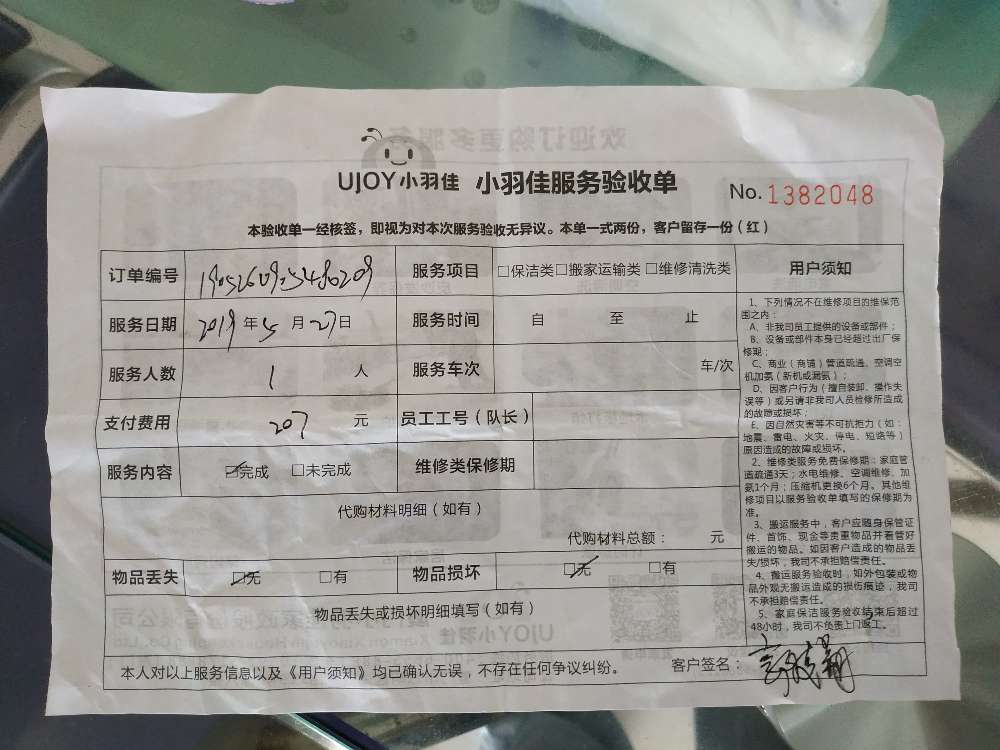 UJOY小羽佳 小羽佳服务验收单 No.1382048
本验收单一经核签，即视为对本次服务验收无异议。本单一式两份，客户留存一份（红）
订单编号 服务项目 □保洁类□搬家运输类□维修清洗类 用户须知
服务日期 2019年5月27日 服务时间 自 至 止
服务人数 1 人 服务车次 车/次
支付费用 207 元 员工工号（队长）
服务内容 ☑完成 □未完成 维修类保修期
代购材料明细（如有）
代购材料总额： 元
物品丢失 ☑无 □有 物品损坏 ☑无 □有
物品丢失或损坏明细填写（如有）
本人对以上服务信息以及《用户须知》均已确认无误，不存在任何争议纠纷。 客户签名：
1、下列情况不在维修项目的维保范
围之内：
A、非我司员工提供的设备或部件；
B、设备或部件本身已经超过出厂保
修期；
C、商业（商铺）管道疏通、空调空
机加氨（新机或漏氨）；
D、因客户行为（擅自装卸、操作失
误等）或另请非我司人员检修所造成
的故障或损坏；
E、因自然灾害等不可抗拒力（如：
地震、雷电、火灾、停电、短路等）
原因造成的故障或损坏。
2、维修类服务免费保修期：家庭管
道疏通3天；水电维修、空调维修、加
氨1个月；压缩机更换6个月。其他维
修项目以服务验收单填写的保修期为
准。
3、搬运服务中，客户应随身保管证
件、首饰、现金等贵重物品并看管好
搬运的物品。如因客户造成的物品丢
失/损坏，我司不承担赔偿责任。
4、搬运服务验收时，如外包装或物
品外观无搬运造成的损伤痕迹，我司
不承担赔偿责任。
5、家庭保洁服务验收结束后超过
48小时，我司不负责上门返工。